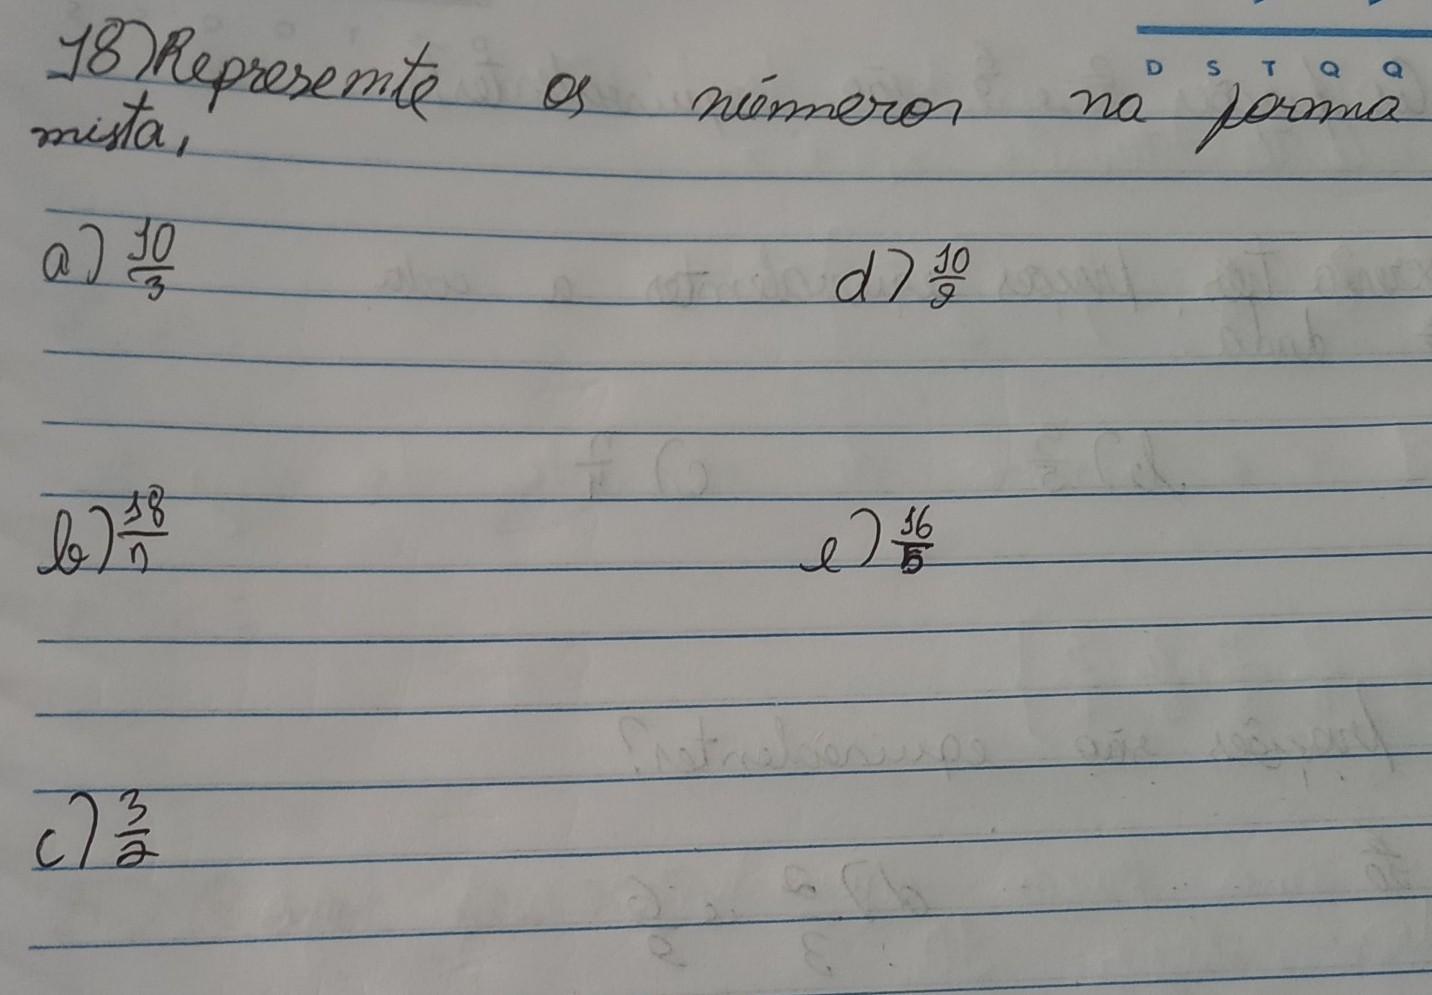 D S T Q Q
18) Represente os números na forma
mista,
a) 10/3 d) 10/9
b) 18/7 e) 16/5
c) 3/2